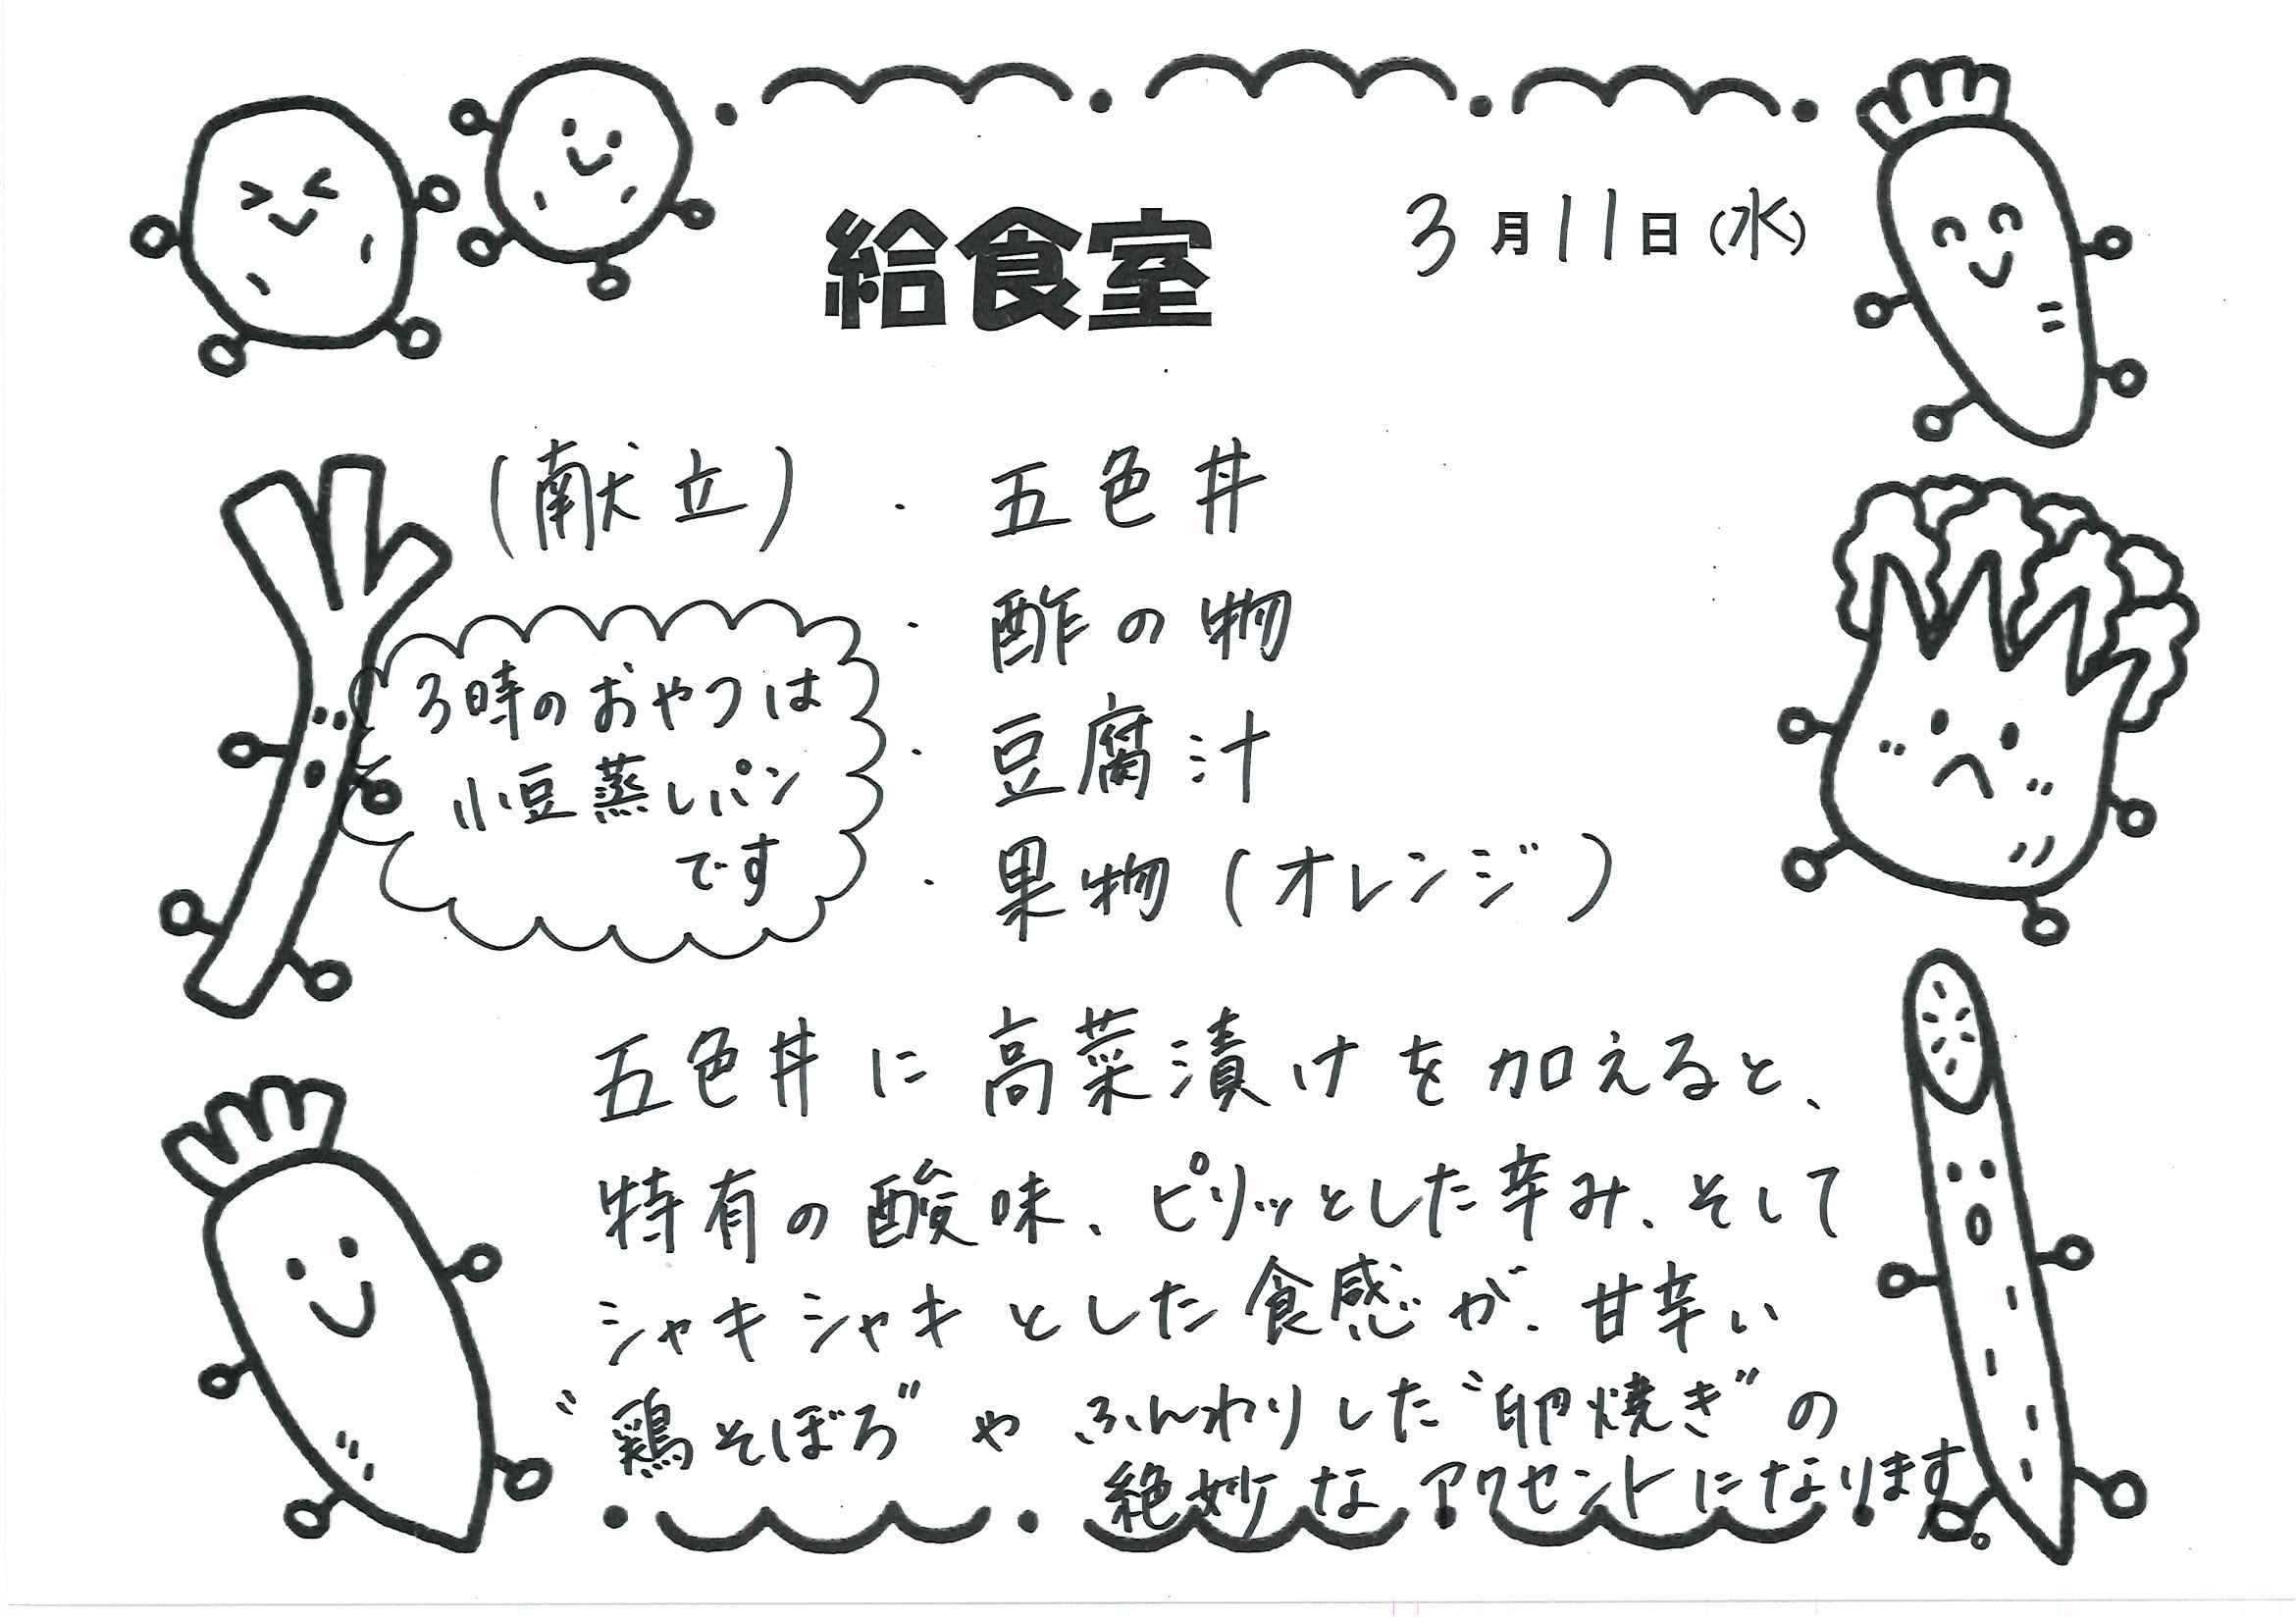 給食室
3月11日(水)
(献立)・五色丼
・酢の物
・豆腐汁
・果物(オレンジ)
3時のおやつは
小豆蒸しパン
です
五色丼に高菜漬けを加えると、
特有の酸味、ピリッとした辛み、そして
シャキシャキとした食感が、甘辛い
"鶏そぼろ"やふんわりした"卵焼き"の
絶妙なアクセントになります。